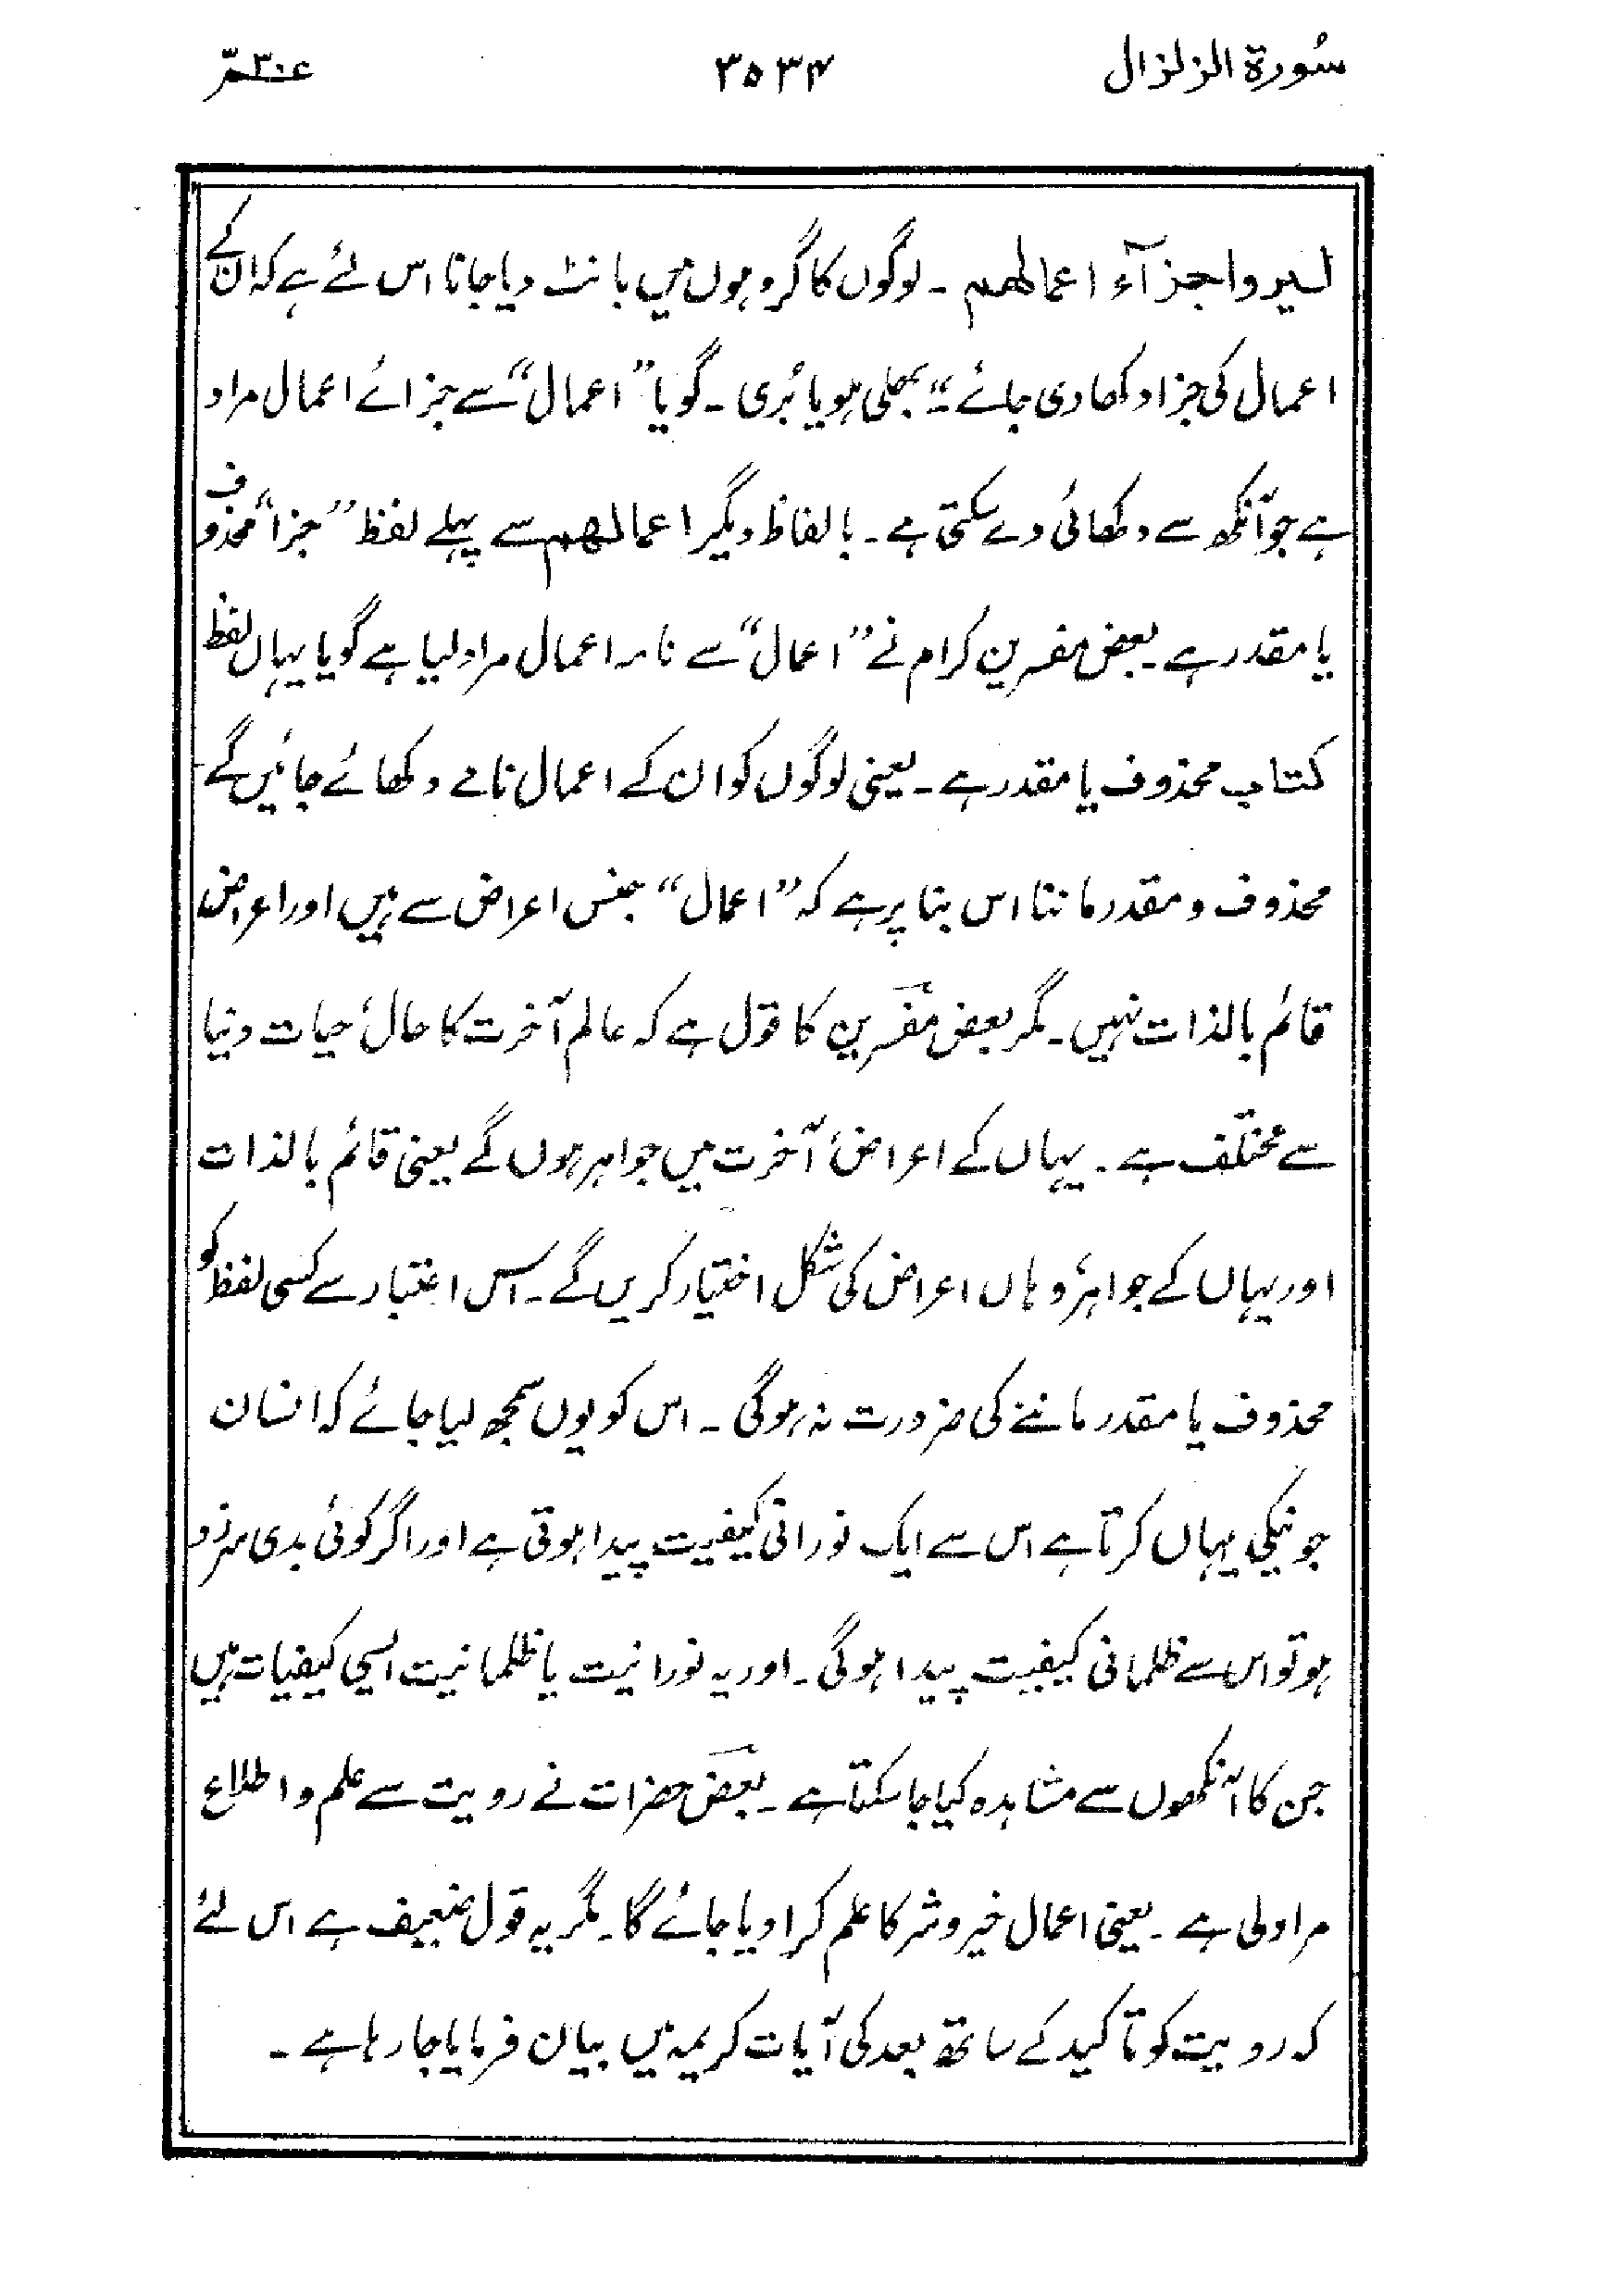 سُورة الزلزال ۳۵۳۴ عمّ ۳۰
لیروا جزآء اعمالھم ۔ لوگوں کا گروہوں میں بانٹ دیا جانا اس لئے ہے کہ ان کے
اعمال کی جزا دکھا دی جائے ۔“ بھلی ہو یا بُری ۔ گویا ”اعمال“ سے جزائے اعمال مراد
ہے جو آنکھ سے دکھائی دے سکتی ہے ۔ بالفاظ دیگر اعمالھم سے پہلے لفظ ”جزا“ محذوف
یا مقدر ہے ۔ بعض مفسرین کرام نے ”اعمال“ سے نامہ اعمال مراد لیا ہے گویا یہاں لفظ
کتاب محذوف یا مقدر ہے ۔ یعنی لوگوں کو ان کے اعمال نامے دکھائے جائیں گے ۔
محذوف و مقدر ماننا اس بنا پر ہے کہ ”اعمال“ جنس اعراض سے ہیں اور اعراض
قائم بالذات نہیں ۔ مگر بعض مفسّرین کا قول ہے کہ عالم آخرت کا حال، حیات دنیا
سے مختلف ہے ۔ یہاں کے اعراض، آخرت میں جواہر ہوں گے یعنی قائم بالذات
اور یہاں کے جواہر، وہاں اعراض کی شکل اختیار کریں گے ۔ اس اعتبار سے کسی لفظ کو
محذوف یا مقدر ماننے کی ضرورت نہ ہوگی ۔ اس کو یوں سمجھ لیا جائے کہ انسان
جو نیکی یہاں کرتا ہے اس سے ایک نورانی کیفیت پیدا ہوتی ہے اور اگر کوئی بدی سرزد
ہو تو اس سے ظلمانی کیفیت پیدا ہوگی ۔ اور یہ نورانیت یا ظلمانیت ایسی کیفیات ہیں
جن کا آنکھوں سے مشاہدہ کیا جا سکتا ہے ۔ بعض حضرات نے رویت سے علم و اطلاع
مراد لی ہے ۔ یعنی اعمال خیر و شر کا علم کرا دیا جائے گا ۔ مگر یہ قول ضعیف ہے اس لئے
کہ رویت کو تاکید کے ساتھ بعد کی آیات کریمہ میں بیان فرمایا جا رہا ہے ۔